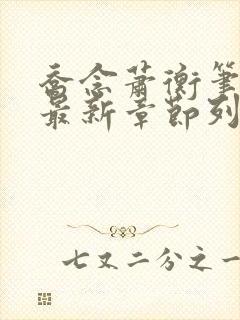 乔念萧衡笔
最新章节列
七又二分之一